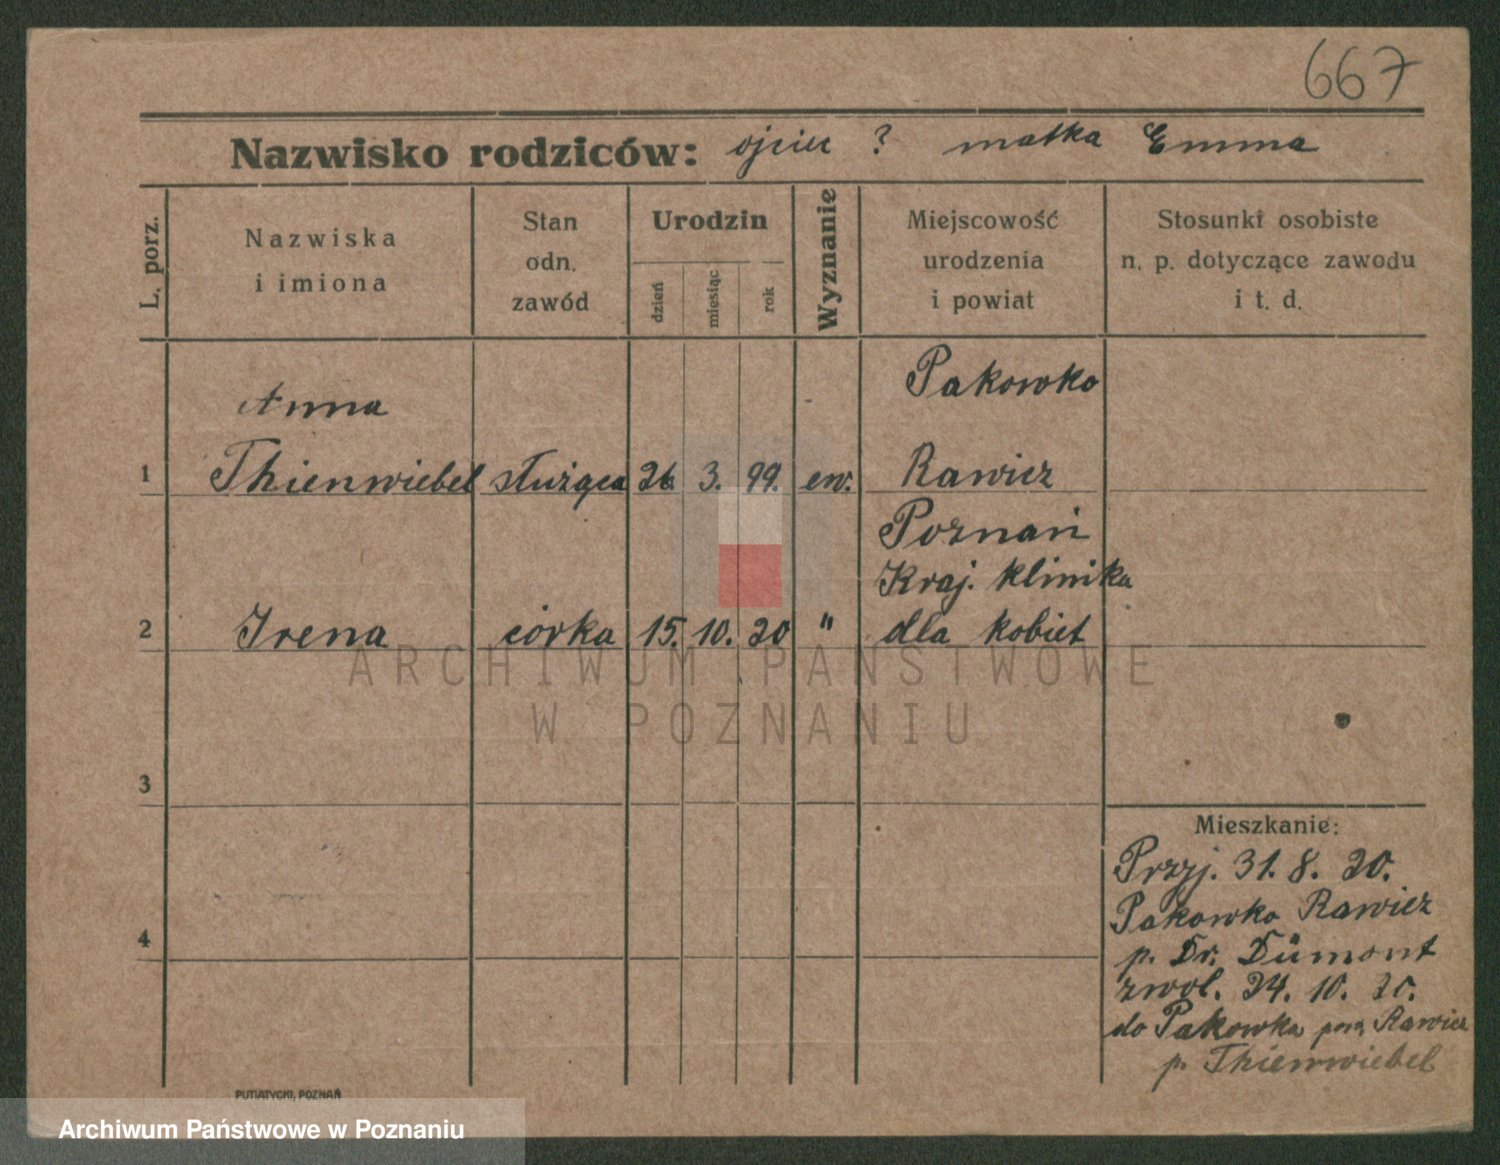 667
Nazwisko rodziców: ojciec ? matka Emma
L. porz.
Nazwiska
i imiona
Stan
odn.
zawód
Urodzin
dzień
miesiąc
rok
Wyznanie
Miejscowość
urodzenia
i powiat
Stosunki osobiste
n. p. dotyczące zawodu
i t. d.
Anna
Pakowko
1 Thienwiebel służąca 26 3. 99. ew. Rawicz
Poznań
Kraj. klinika
2 Irena córka 15. 10. 20 " dla kobiet
ARCHIWUM PAŃSTWOWE
W POZNANIU
3
4
Mieszkanie:
Przyj. 31. 8. 20.
Pakowko Rawicz
p. Dr. Dümont
zwol. 24. 10. 20.
do Pakowka pow. Rawicz
p. Thienwiebel
PUTIATYCKI, POZNAŃ
Archiwum Państwowe w Poznaniu